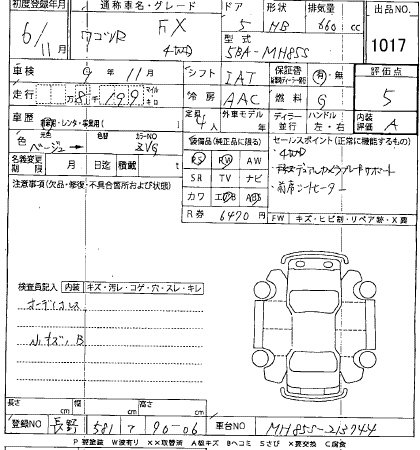 初度登録年月 通称車名・グレード ドア 形状 排気量 出品NO.
6/11 ワゴンR FX 4WD 5 HB 660 cc
型式 5BA-MH85S 1017
車検 9年11月 シフト IAT 保証書 有・無 評価点
走行 万8千199 マイル キロ 冷房 AAC 燃料 G 5
車歴 自家用・レンタ・営業用( ) 定員 4人 外車モデル年 ディーラー 並行 ハンドル 左・右 内装評価 A
色 元色 ベージュ→ カラーNO ZVG
装備品(純正品に限る) セールスポイント(正常に機能するもの)
名義変更期限 月 日迄 積載 PS PW AW 4WD
注意事項(欠品・修復・不具合箇所および状態) SR TV ナビ デュアルカメラブレーキサポート
カワ エアB ABS 前席シートヒーター
R券 6470円 FW キズ・ヒビ割・リペア跡・X要
検査員記入 内装 キズ・汚レ・コゲ・穴・スレ・キレ
オーディオレス
小キズ、B
長さ cm 幅 cm 高さ cm
登録NO 長野 581 て 90-06 車台NO MH85S-213744
P要塗装 W波有り XX取替済 A線キズ Bヘコミ Sさび X要交換 C腐食